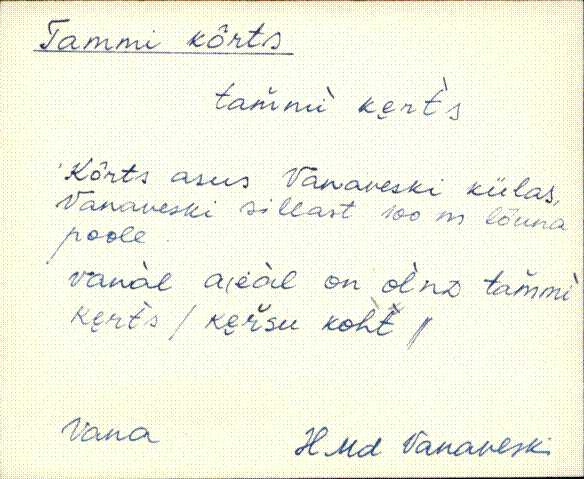 Tammi kõrts
tam̆mì kẹrt̀s
Kõrts asus Vanaveski külas,
Vanaveski sillast 100 m lõuna
poole.
vanàl a(eàl on òlnᴅ tam̆mì
kẹrt̀s / kẹr̆su koh̀t̆ //
Vana
HMd Vanaveski